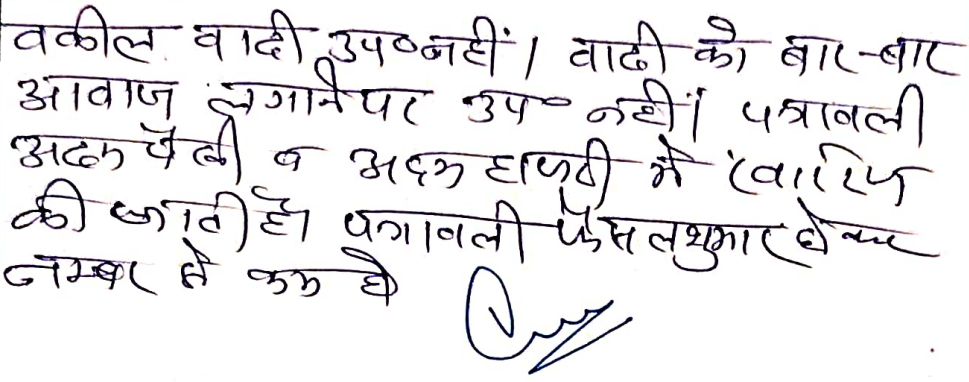 वकील वादी उप० नहीं। वादी को बार-बार
आवाज लगाने पर उप० नहीं। पत्रावली
अदम पैरवी व अदम हाजरी में खारिज
की जाती है। पत्रावली फैसलशुमार होकर
नम्बर से कम हो